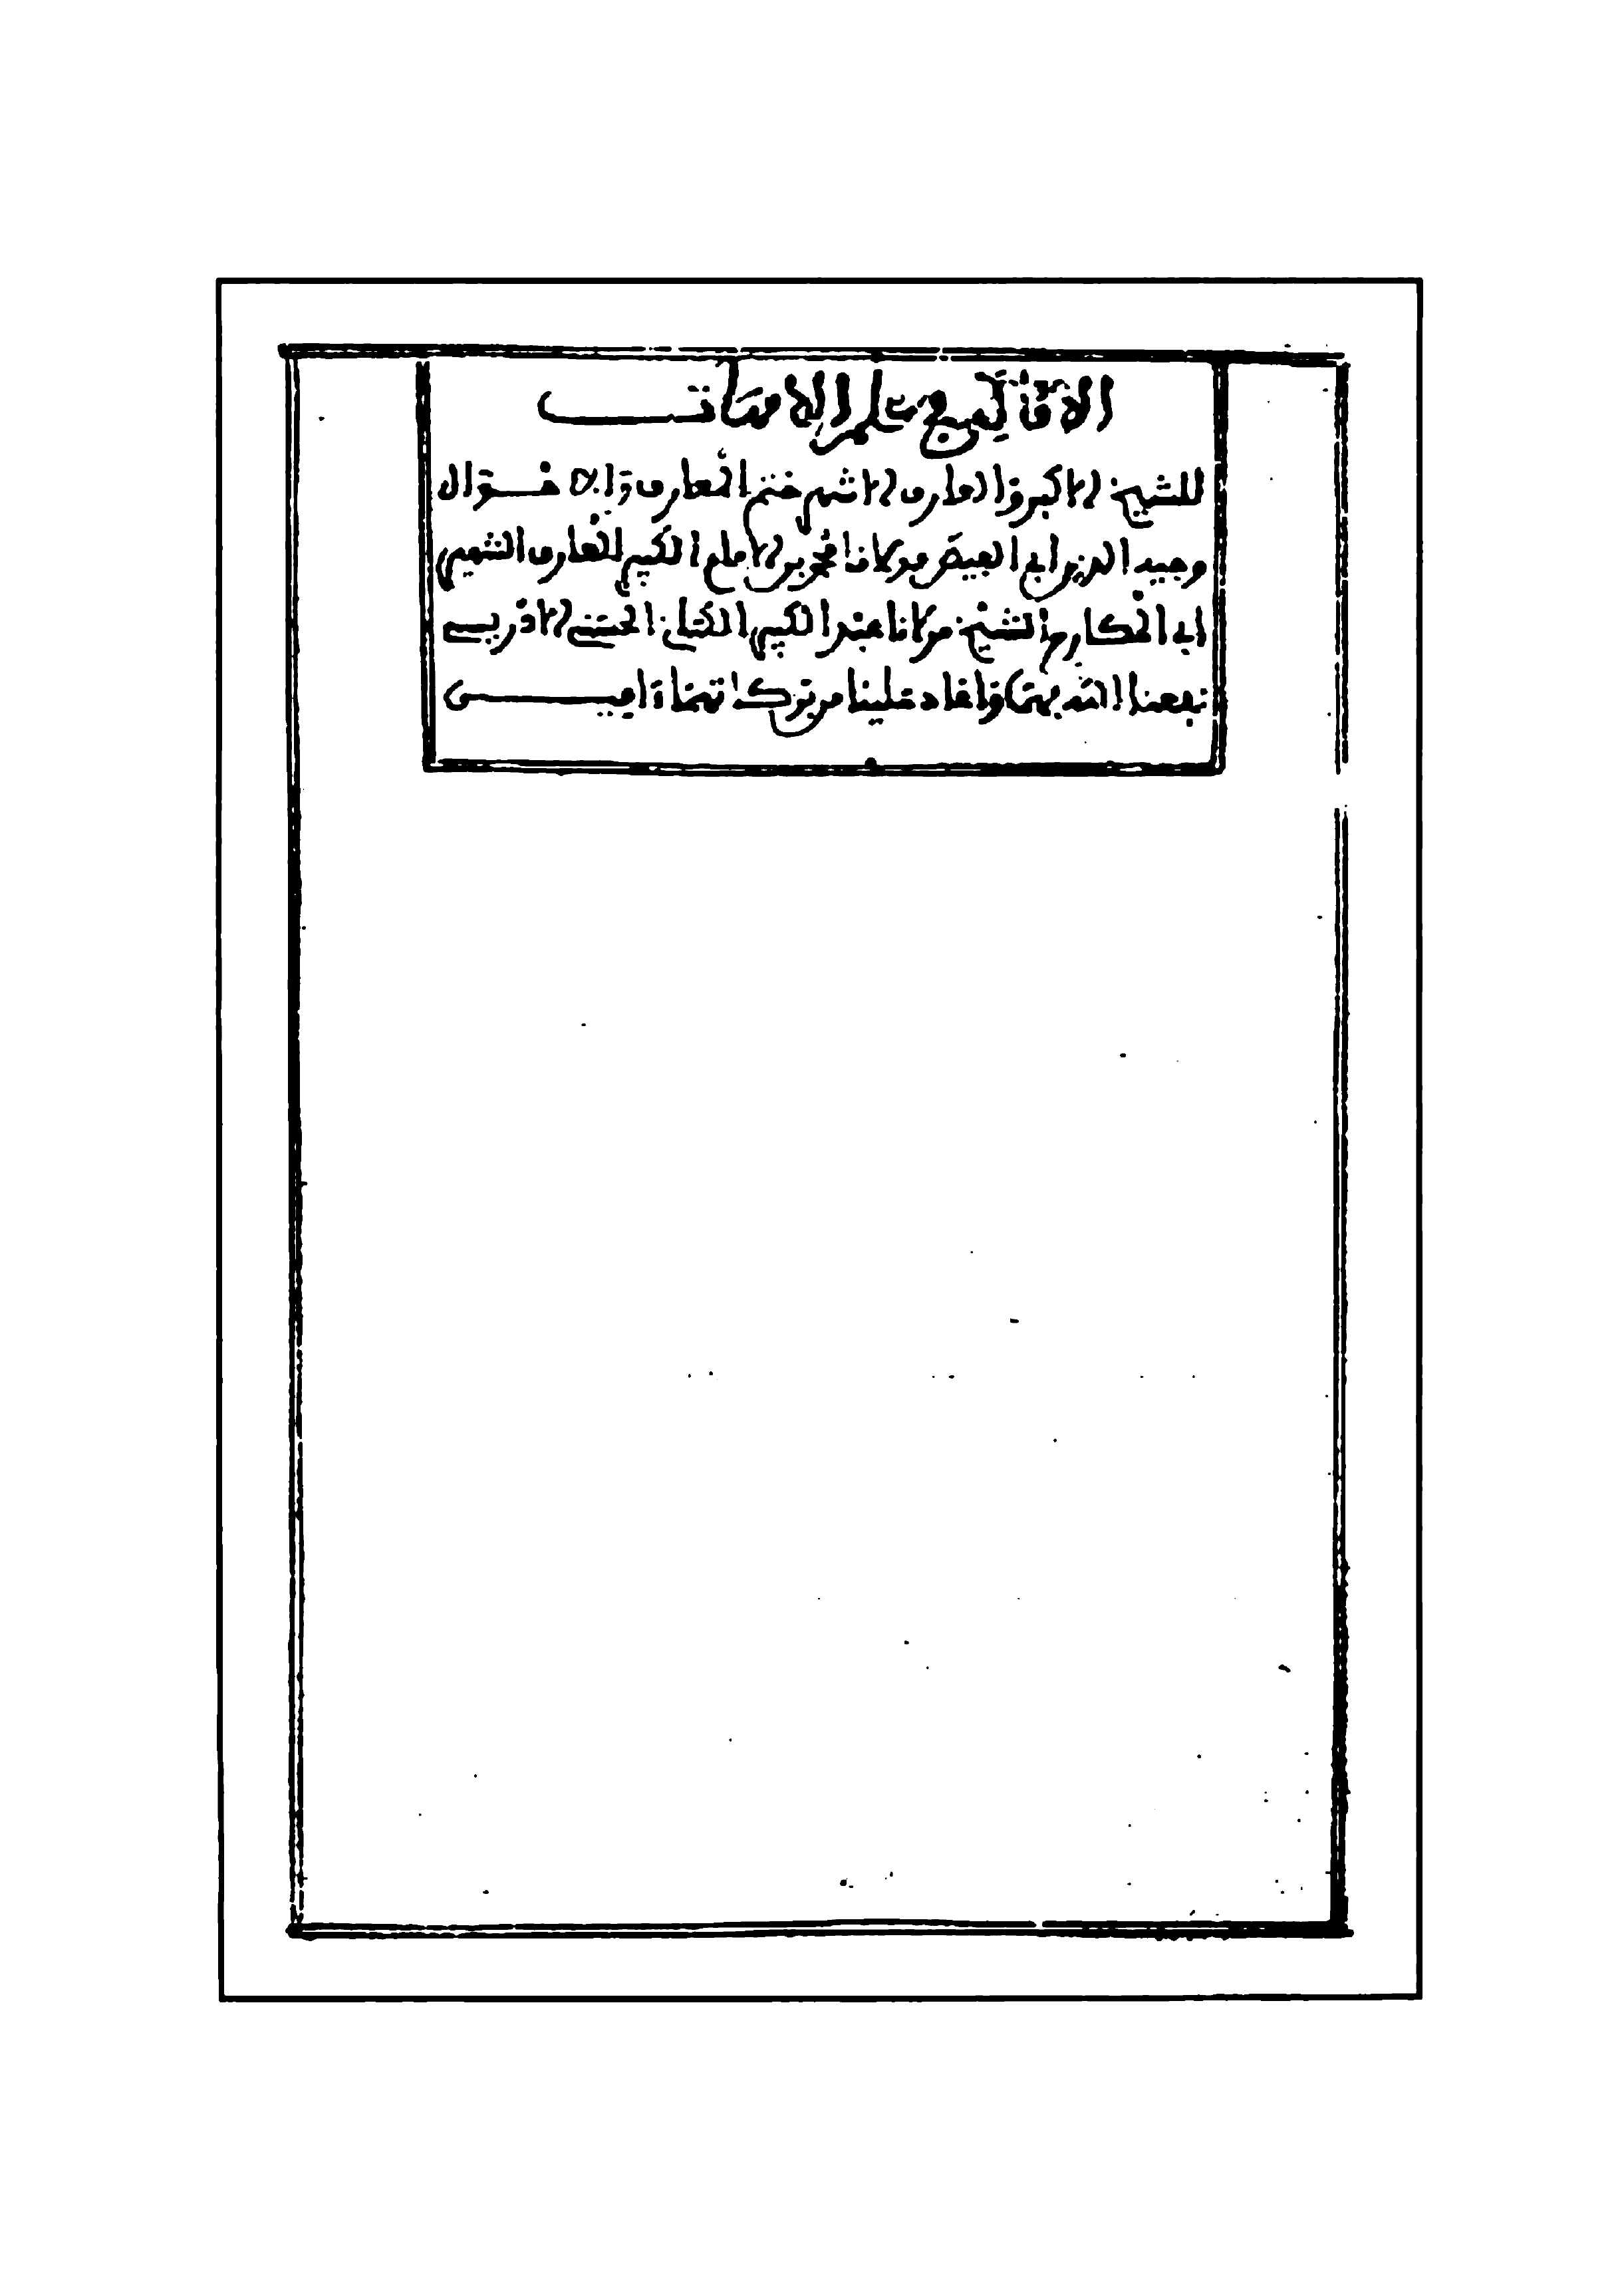 الاقاليد في علم الاسانيد
للشيخ الاكبر والعارف الاشهر ختم المعارف والاخوال
وحيد الدين ابي الفيض مولانا محمد بن الامام الكبير العارف الشهير
ابي المكارم الشيخ مولانا عبد الكبير الكتاني الحسني الادريسي
نفعنا الله بهما وافاد علينا من بركاتهما ءامين